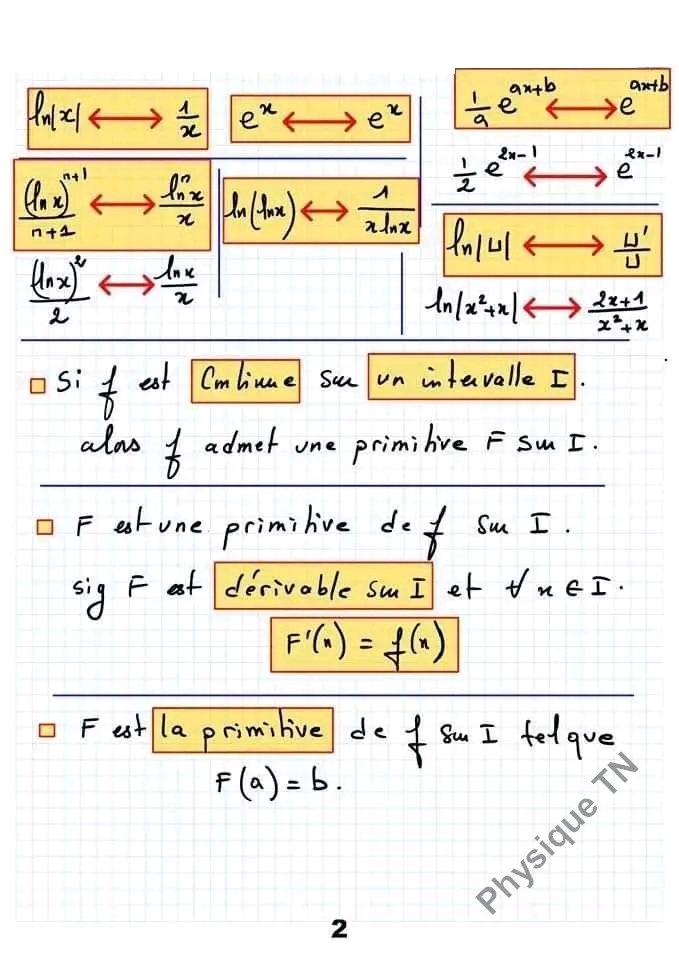 ln|x| ↔ 1/x
e^x ↔ e^x
1/a e^(ax+b) ↔ e^(ax+b)
1/2 e^(2x-1) ↔ e^(2x-1)
(ln x)^(n+1)/(n+1) ↔ ln^n x/x
ln(lnx) ↔ 1/(x lnx)
ln|u| ↔ u'/u
(lnx)^2/2 ↔ lnx/x
ln|x²+x| ↔ (2x+1)/(x²+x)
Si f est Continue sur un intervalle I.
alors f admet une primitive F sur I.
F est une primitive de f sur I.
sig F est dérivable sur I et ∀ x ∈ I.
F'(x) = f(x)
F est la primitive de f sur I tel que
F(a) = b.
Physique TN
2